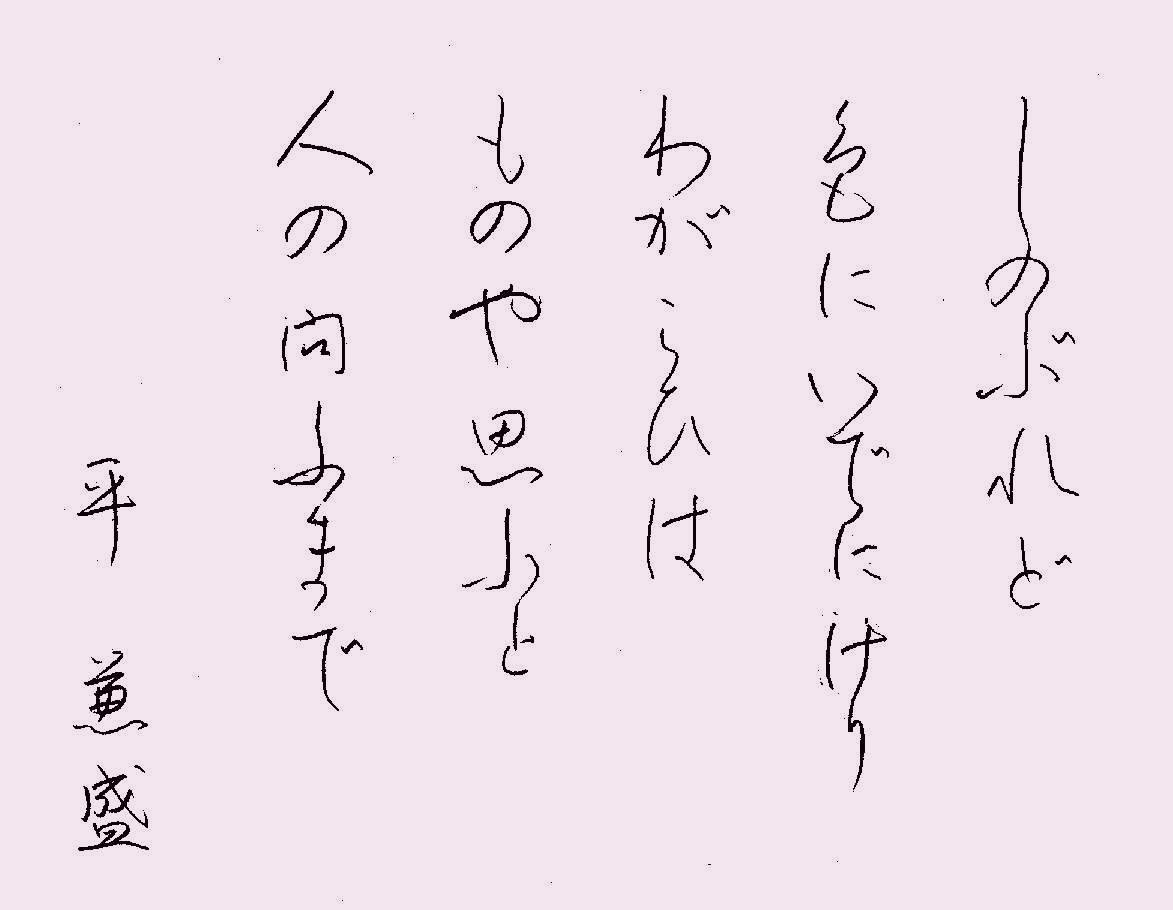 しのぶれど
色にいでにけり
わがこひは
ものや思ふと
人の問ふまで
平 兼盛